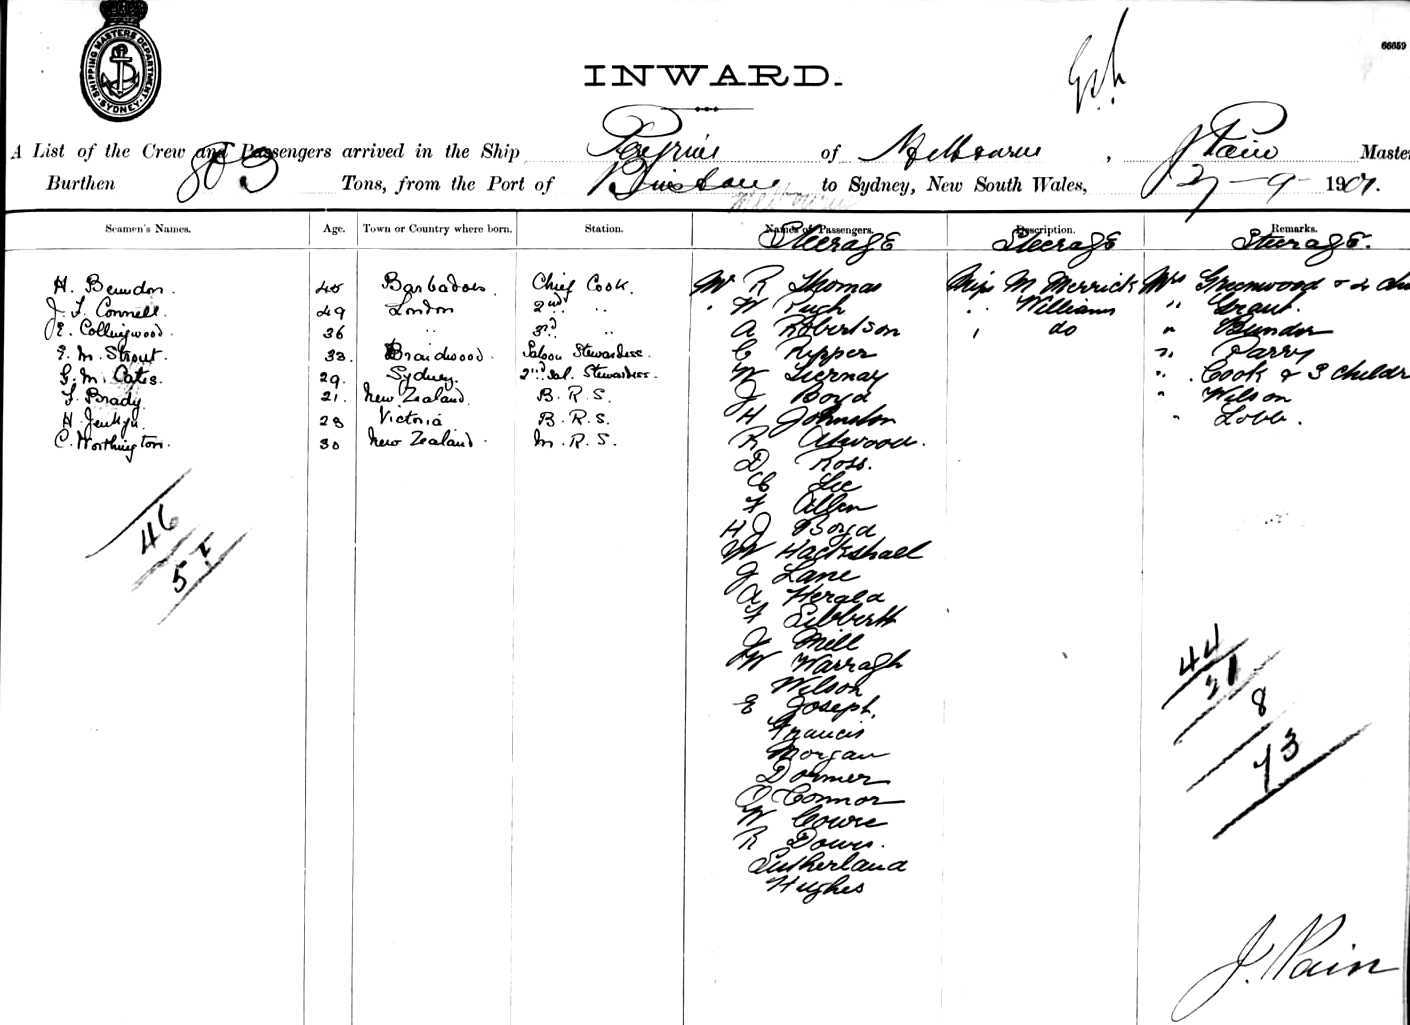 SHIPPING MASTERS DEPARTMENT SYDNEY
66659
INWARD.
A List of the Crew and Passengers arrived in the Ship of Melbourne, J Pain Master
Burthen 803 Tons, from the Port of to Sydney, New South Wales, 27-9-1901.
Seamen's Names. Age. Town or Country where born. Station. Names of Passengers. Description. Remarks.
Steerage Steerage Steerage.
H. 45 Barbados. Chief Cook. Mr R Thomas Miss M Merrick Mrs Greenwood &
J. F. Connell. 49 London 2nd " " W Pugh " Williams " Grant
E. Collingwood. 36 " 3rd " A Robertson " do "
E. M. Strout. 33. Braidwood. Saloon Stewardess. C Kipper " Parry
G. M. Cates. 29. Sydney. 2nd Sal. Stewardess. W Tiernay " Cook & 3 Childr
F. Brady 21. New Zealand. B. R. S. J Boyd " Wilson
H. 28 Victoria B. R. S. H Johnston " Lobb.
C. Worthington. 30 New Zealand. M. R. S. R Atwood.
D Ross.
C Lee
F Allen
H J Boyd
W Hackshall
J Lane
A Herald
F
J Mill
W Warragh
Wilson
E Joseph.
Francis
Morgan
Dormer
O'Connor
W Cowie
R
Sutherland
Hughes
46
44
21
8
73
J. Pain